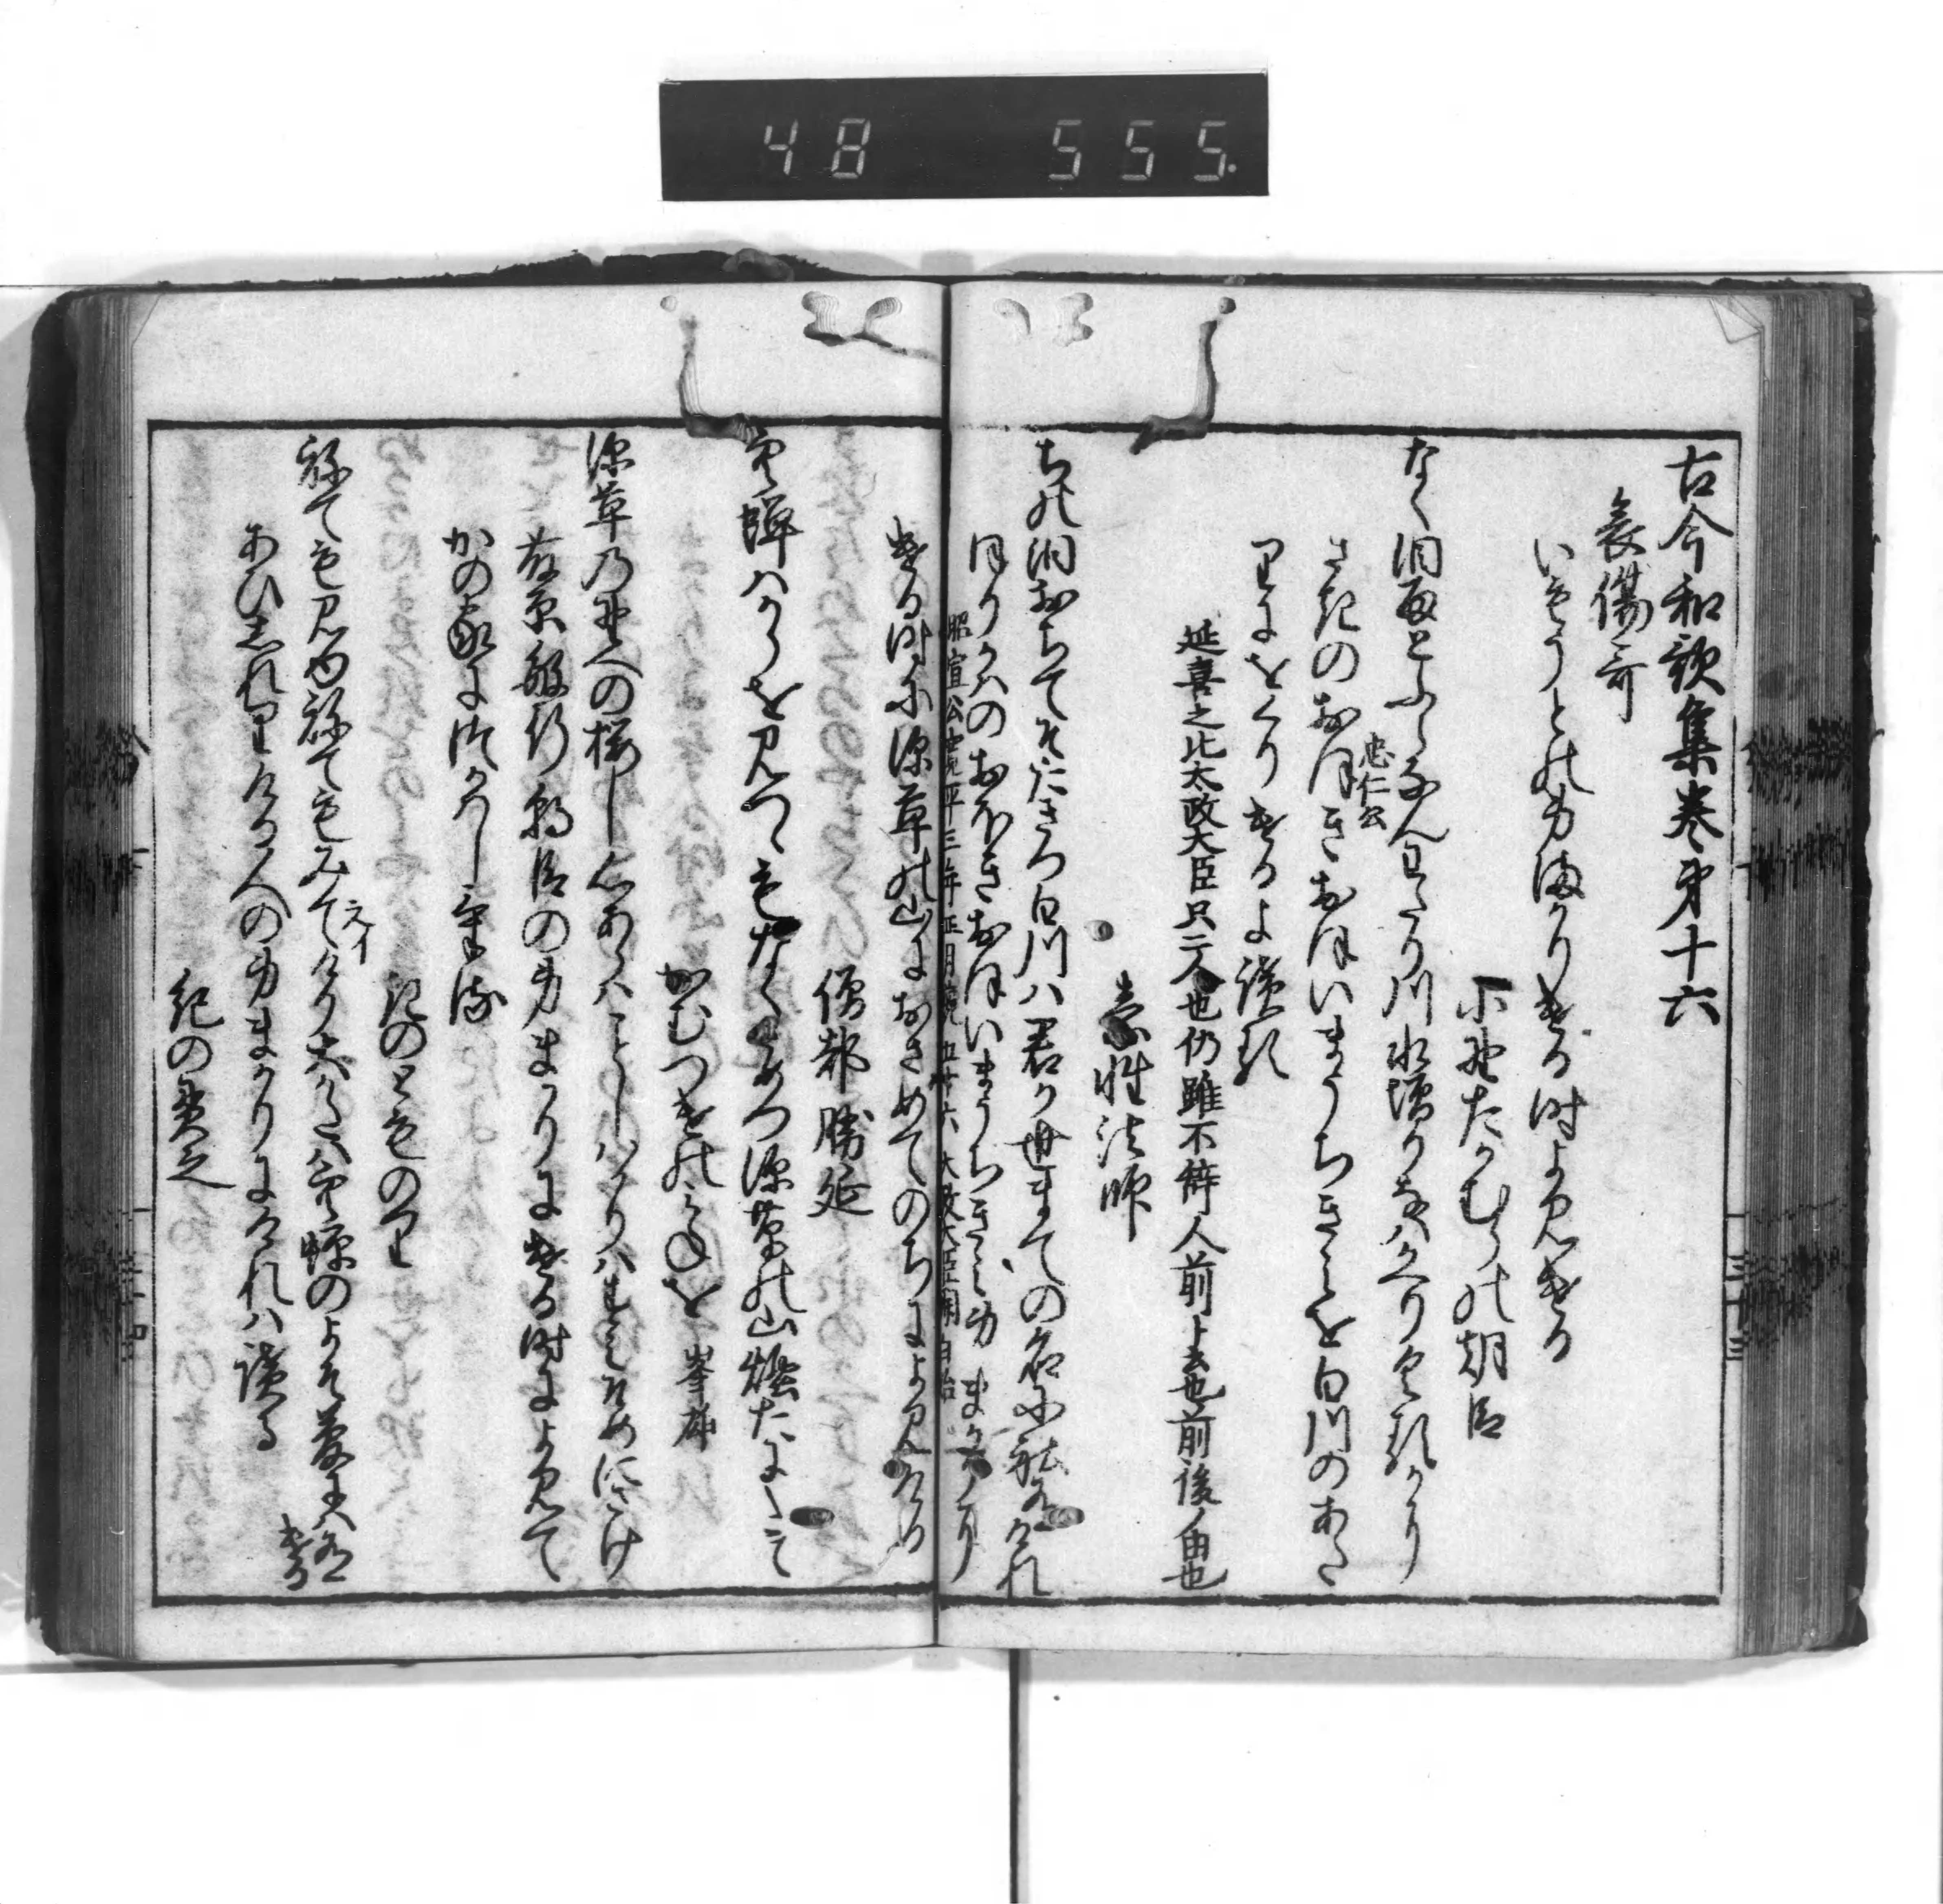 48 555.
古今和歌集巻第十六
哀傷哥
いもうとの身まかりける時よみける
小野たかむらの朝臣
なく泪雨とふらなんわたり川水増りなはかへりくるかり
さきのおほきおほいまうちきみを白川のあた
忠仁公
りにをくりけるよ読る
延喜之比太政大臣只二人也仍雖不辞人前ト云也前後ノ由也
素性法師
ちの泪おちてそたきつ白川ハ君か世まての名にこそ有けれ
ほりかはのおほきおほいまうちきみ身まかり
昭宣公寛平三年正月薨五十六太政大臣関白
ける時に深草の山におさめてのちによみける
僧都勝延
空蝉ハからを見つゝもなくさめつ深草の山煙たにたて
かむつけのみねを 峯雄
深草乃野への桜し心あらハことしハかりハすみそめにさけ
藤原敏行朝臣の身まかりにける時によみて
かの家につかハしける
紀のとものり
ねても見ゆねてもみてけり大かたハ空蝉のよそ夢にハ有
ける
えイ
あひしれりける人の身まかりにけれハ読る
紀の貫之
三十三